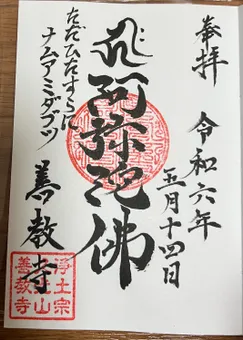 奉拝
令和六年
五月十四日
阿弥陀佛
ただひたすらに
ナムアミダブツ
善教寺
浄土宗
善教寺